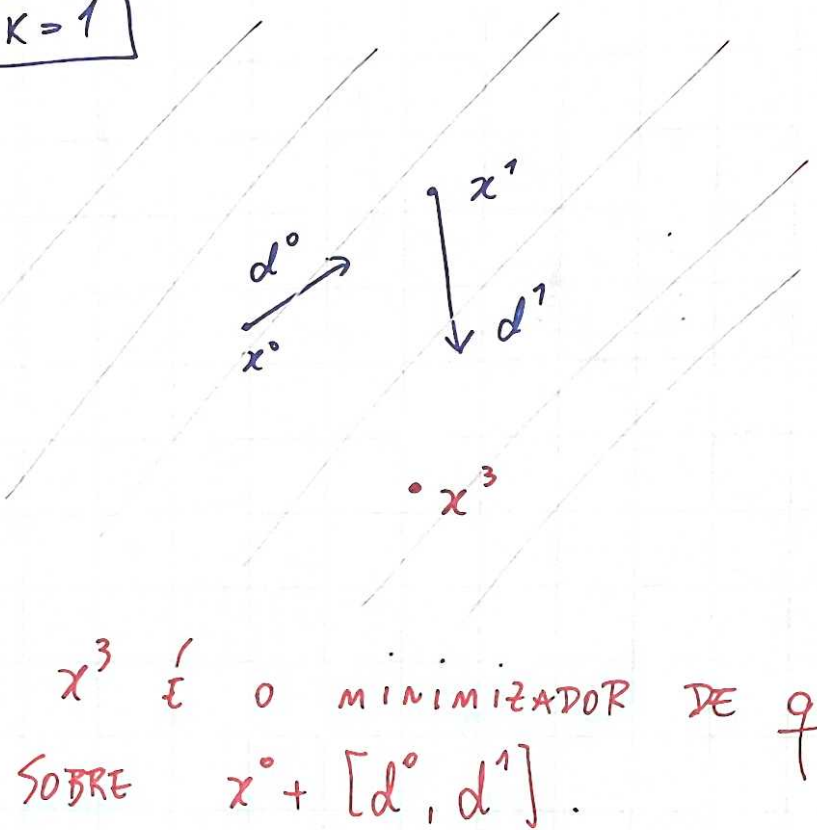 K = 1
d⁰
x⁰
x¹
d¹
x³
x³ É O MINIMIZADOR DE q
SOBRE x⁰ + [d⁰, d¹].